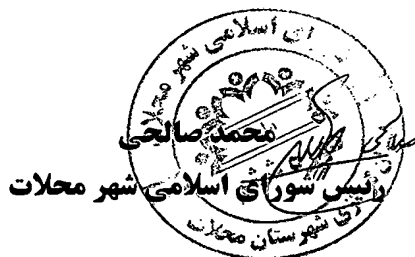 ای اسلامی شهر محلات
محمد صالحی
رئیس شورای اسلامی شهر محلات
شهرستان محلات